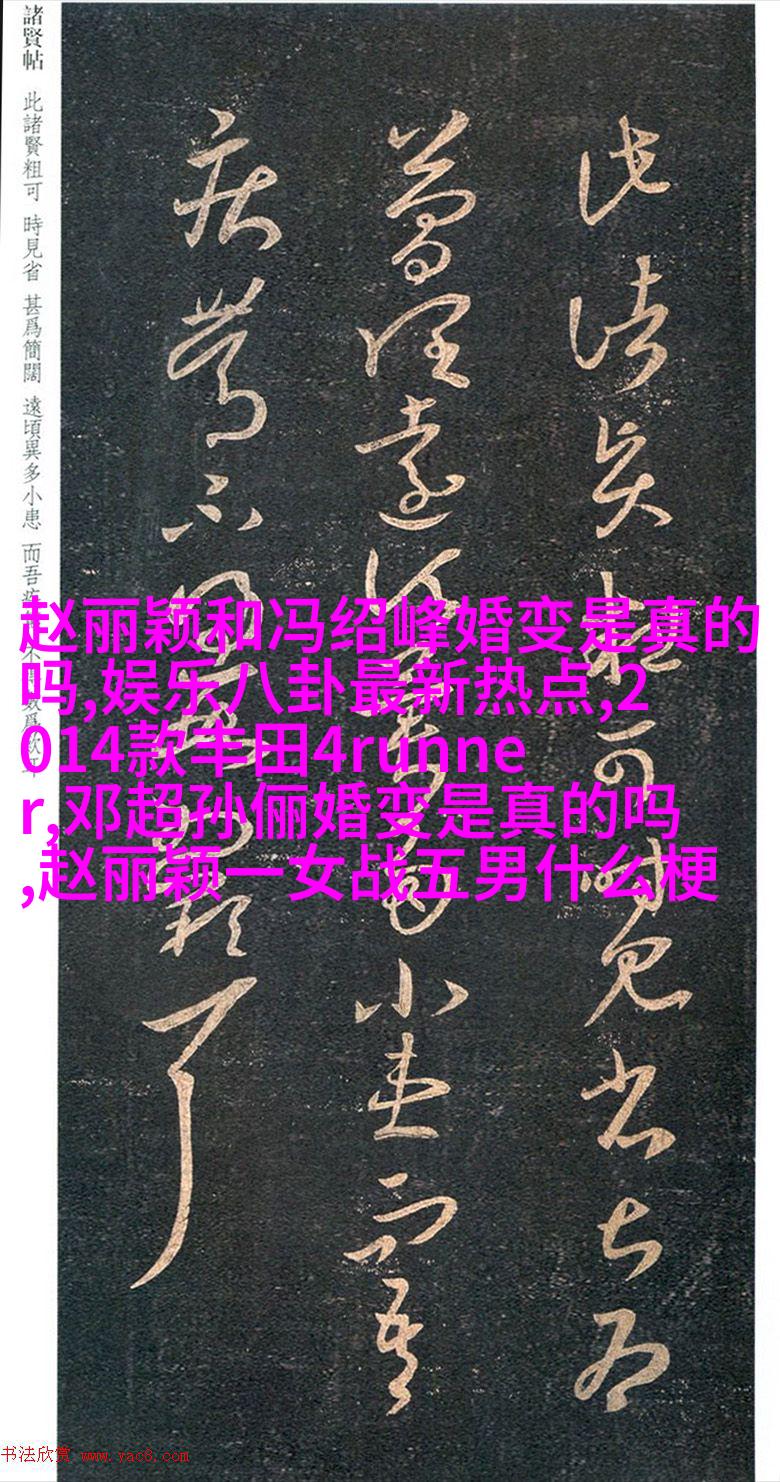 諸賢帖 此諸賢粗可 時見省 甚爲簡闊 遠頃異多小患 而吾疾
赵丽颖和冯绍峰婚变是真的
吗,娱乐八卦最新热点,2
014款丰田4runne
r,邓超孙俪婚变是真的吗
,赵丽颖一女战五男什么梗
此諸賢粗可時見省甚爲
簡闊遠頃異多小患而吾
疾
书法欣赏 www.yac8.com